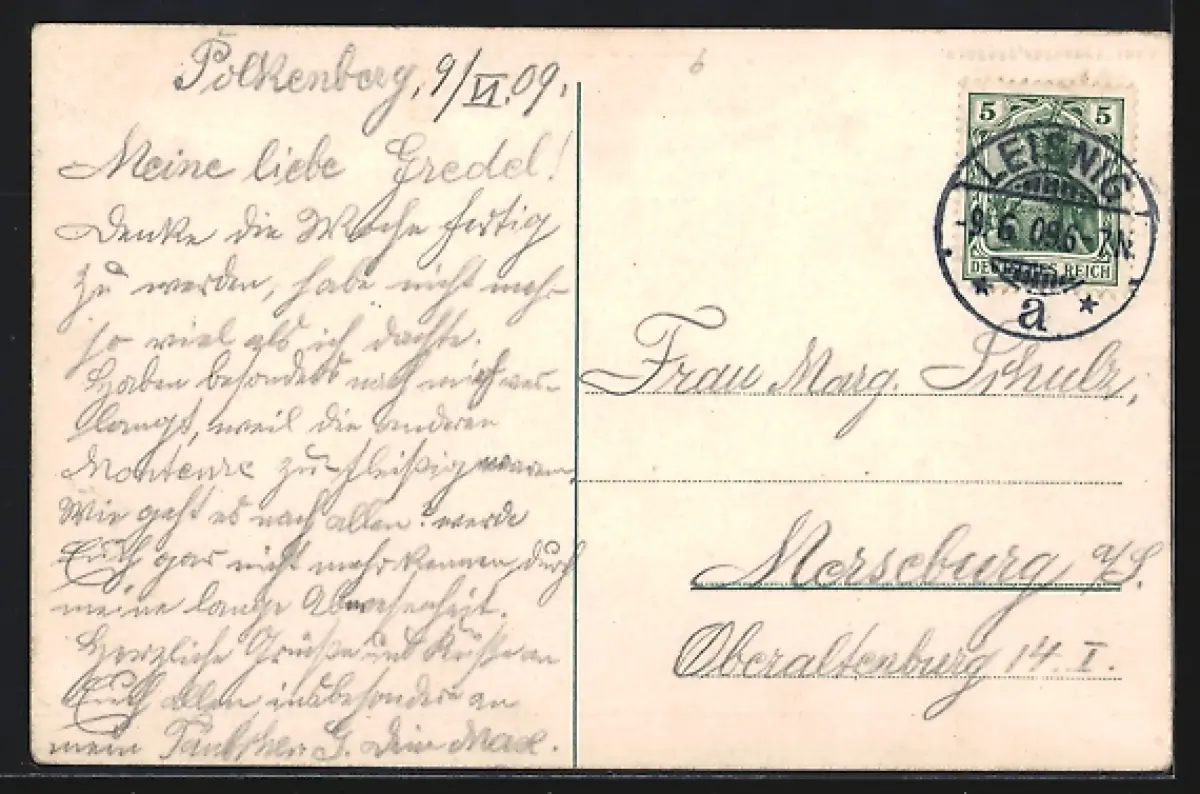 Polkenberg, 9/VI.09.
Meine liebe Gredel!
Denke die Woche fertig
zu werden, habe nicht mehr
so viel als ich dachte.
Haben besonders nach mich ver-
langt, weil die anderen
Monteure zu fleißig waren,
Wie geht es euch allen? werde
Euch gar nicht mehr kennen durch
meine lange Abwesenheit.
Herzliche Grüße und Küsse an
Euch allen insbesondere an
mein G. Dein Max.
5 5
DEUTSCHES REICH
LEISNIG
-9.6.09.6-7N.
* a *
Frau Marg. Schulz,
Merseburg a/S.
Oberaltenburg 14. I.